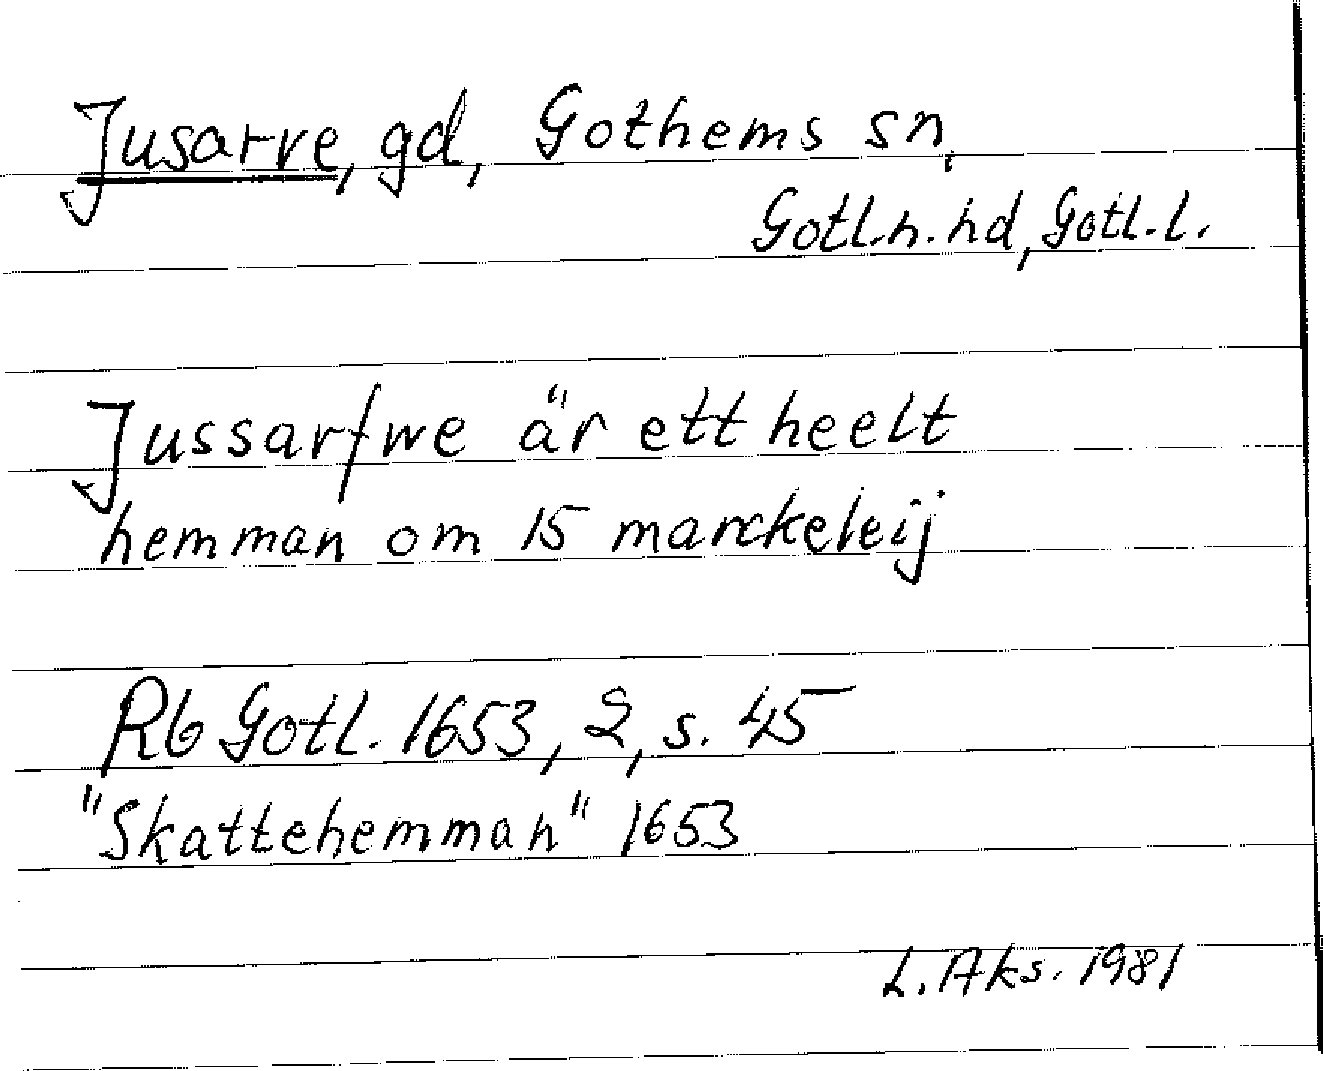 Jusarve, gd, Gothems sn,
Gotl.n.hd, Gotl.l.
Jussarfwe är ett heelt
hemman om 15 marckeleij
Rb Gotl. 1653, 2, s. 45
"Skattehemman" 1653
L. Aks. 1981